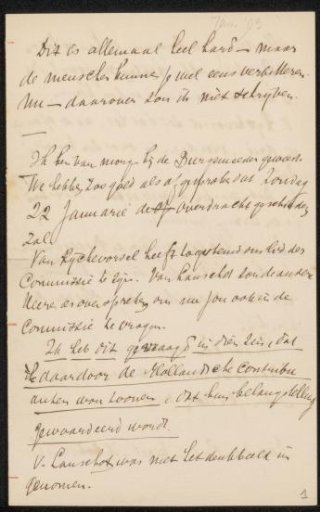 Jan. '93
Dit is allemaal heel hard – maar
de menschen kunnen je wel eens verbitteren.
Nu – daarover zou ik niet schrijven.
Ik ben van morgen bij de Burgemeester geweest.
We hebben zoo goed als afgesproken dat Zondag
22 Januarie de overdracht geschieden
zal.
Van Ryckevorsel heeft toegestemd om lid der
Commissie te zijn. Van Lanschot zou de andere
Heeren er over spreken om jou ook in de
Commissie te vragen.
Ik heb dit gevraagd in dien zin, dat
ik daardoor de Hollandsche contribu
anten won toonen dat hun belangstelling
gewaardeerd wordt.
v. Lanschot was met het denkbeeld in
genomen.
1